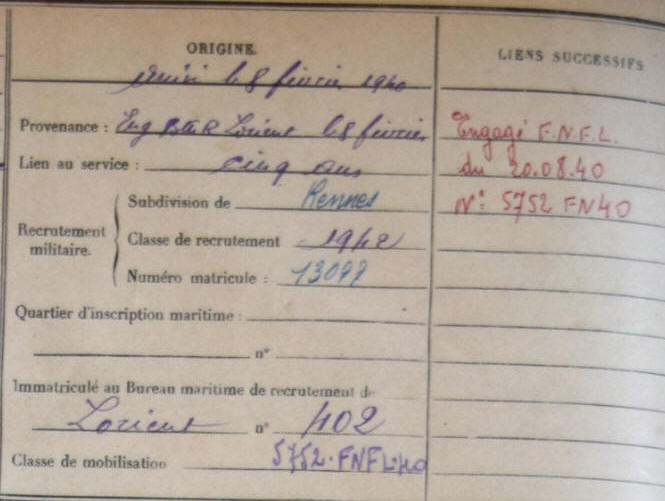 ORIGINE.
le 8 février 1940
Provenance : Eng Lorient le 8 février
Lien au service : cinq ans
Recrutement militaire.
Subdivision de Rennes
Classe de recrutement 1942
Numéro matricule :
Quartier d'inscription maritime :
n°
Immatriculé au Bureau maritime de recrutement de
Lorient n° 402
Classe de mobilisation 5752.FNFL.40
LIENS SUCCESSIFS
Engagé F.N.F.L.
du 20.08.40
N°: 5752 FN40